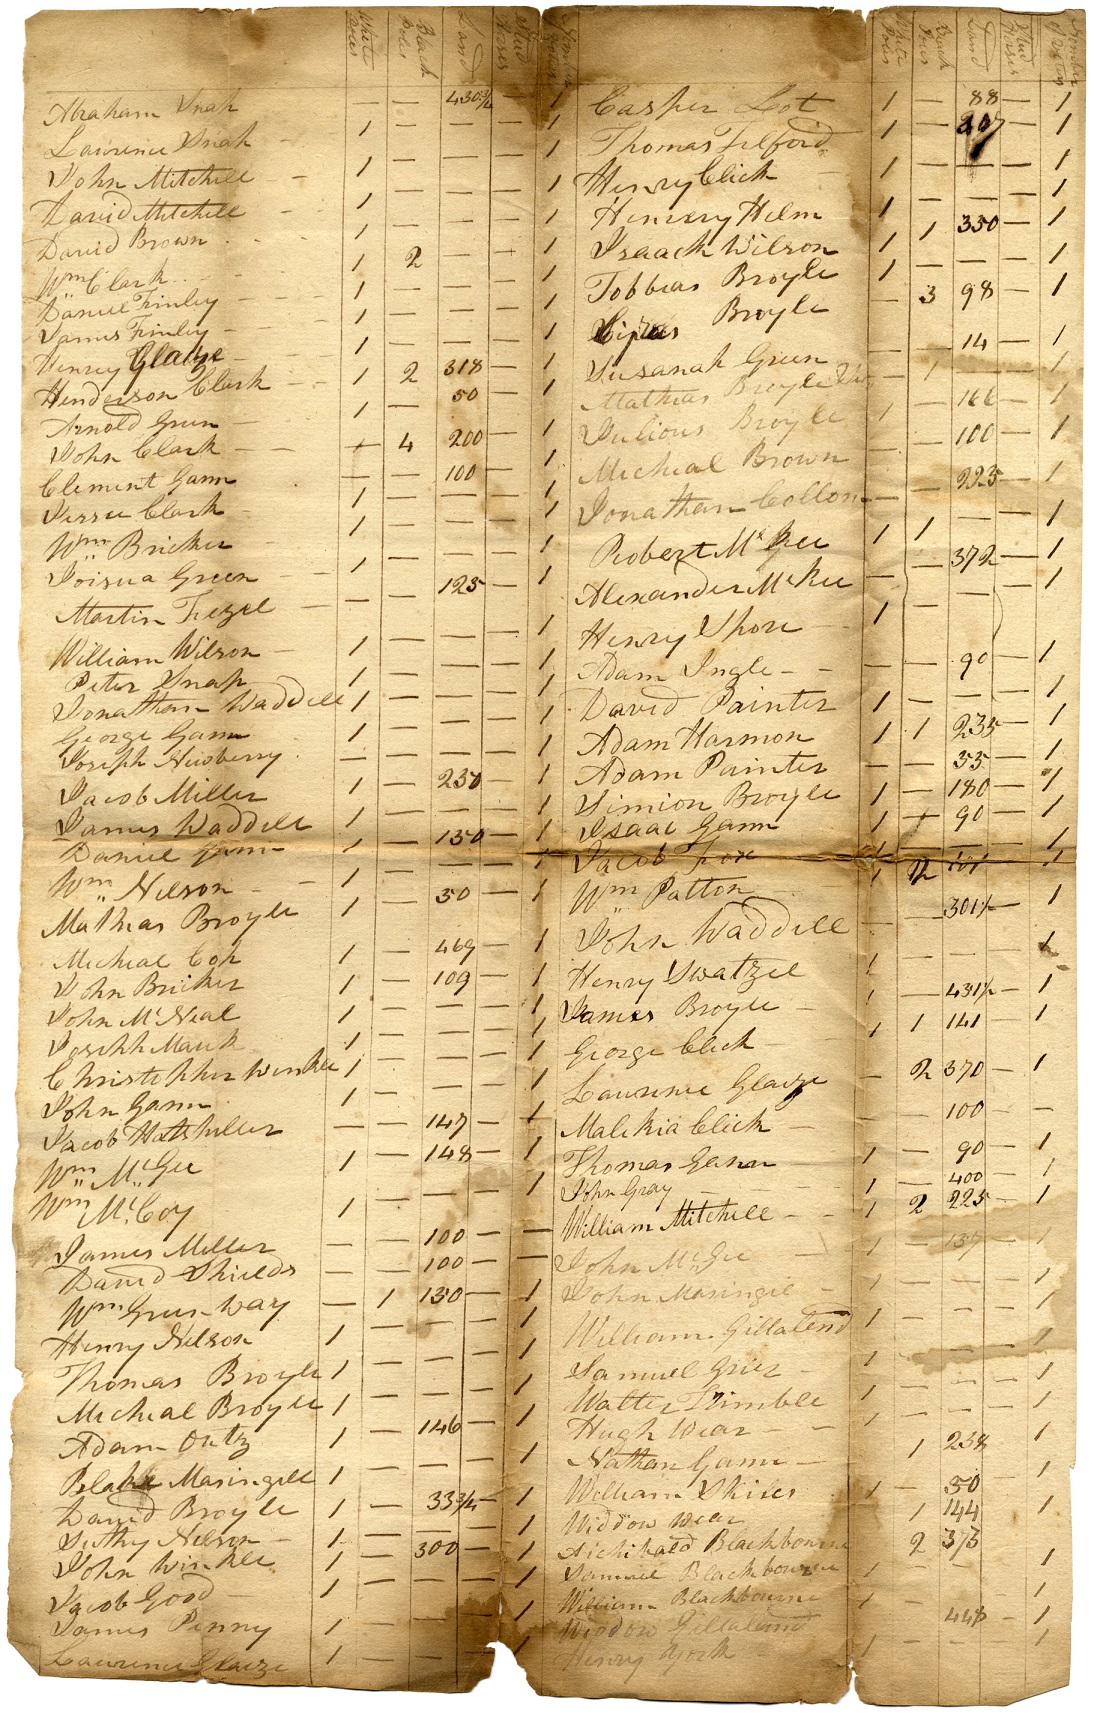 White Poles Black Poles Land Stud Horses Number of Voters
Abraham Snap — — 430 3/4 — 1
Laurence Snap 1 — — — 1
John Mitchell — — — — 1
David Mitchell 1 — — — 1
David Brown 1 — — — 1
Wm Clark 1 2 — — 1
Daniel Finley 1 — — — 1
James Finley 1 — — — 1
Henrey Glaize 1 — — — 1
Henderson Clark 1 2 318 — 1
Arnold Green 1 — 50 — 1
John Clark 4 200 — 1
Clement Gann — — 100 — 1
Jessee Clark 1 — — — 1
Wm Bricker 1 — — — 1
Joisua Green 1 — — — 1
Martin Fezel — — 125 — 1
William Wilson 1 — — — 1
Peter Snap 1 — — — 1
Jonathan Waddell 1 — — — 1
George Gann 1 — — — 1
Joseph
Jacob Miller 1 — 230 — 1
James Waddell 1 — — — 1
Daniel Gann — 150 — 1
Wm Nelson 1 — — — 1
Mathias Broyle 1 — 50 — 1
Micheal Cop 1 — 469 — 1
John Bricker 1 — 109 — 1
John McNeal 1 — — — 1
Joseph Mauk 1 — — — 1
Christopher Winkle 1 — — — 1
John Gann 1 —
Jacob — — 147 — 1
Wm McGee 1 — 148 — 1
Wm McCoy 1 — — — 1
James Miller — — 100 — —
David Shields — — 100 — —
Wm Greenway — 1 130 — 1
Henry Nelson 1 — — — 1
Thomas Broyle 1 — — — 1
Micheal Broyle 1 — — — 1
Adam Outz 1 — 146 — 1
Blake Masingill 1 — — — 1
David Broyle 1 — 33 3/4 — 1
Nelson 1 — — — 1
John Winkle 1 — 300 — 1
Jacob Good 1 — — — 1
James Penny 1 — — — 1
Laurence Glaize 1 — — — 1
White Poles Black Poles Land Stud Horses Number of Voters
Casper Lot 1 — 88 — 1
Thomas Telford 1 — 207 — 1
Henry Click 1 — — — 1
Henrery Helm 1 — — — 1
Isaack Wilson 1 1 350 — 1
Tobbias Broyle 1 — — — 1
Broyle — 3 98 — 1
Susanah Green — — 14 — 1
Mathias Broyle — 1 — — 1
Julious Broyle 1 — 166 — 1
Micheal Brown — 100 — 1
Jonathan Collom — — 225 — 1
Robert McKee 1 1 — — 1
Alexander McKee — — 372 — 1
Henry Shore 1 — — — 1
Adam Ingle — — 90 — 1
David Painter 1 — — — 1
Adam Harmon 1 1 235 — 1
Adam Painter — — 55 — 1
Simion Broyle 1 — 180 — 1
Isaac Gann 1 90 — 1
Jacob Fox — — 1
Wm Patton 1 2 101 — 1
John Waddell — 301 1/2 — 1
Henry Swatzel 1 — — — 1
James Broyle 1 — 431 1/2 — 1
George Click 1 1 141 — 1
Laurence Glaize — 2 370 — 1
Malekia Click — — 100 — —
Thomas Gann 1 — 90 — 1
John Gray — — 400 — 1
William Mitchell 1 2 225 — 1
John McGee 1 — 137 — 1
John Masingil 1 — — — 1
William Gillalend 1 — — — 1
Samuel Grier 1 — — — 1
Walter Trimble 1 — — — 1
Hugh Wear 1 238
Nathan Gann
William Shiles 1 — 50
Widdow Wear 1 144 1
Archibald Blackbourne 2 373
Samuel Blackbourne 1 — — — 1
William Blackbourne 1 — — — 1
Widdow Gillalend 448 — 1
Henry York 1 — — — 1